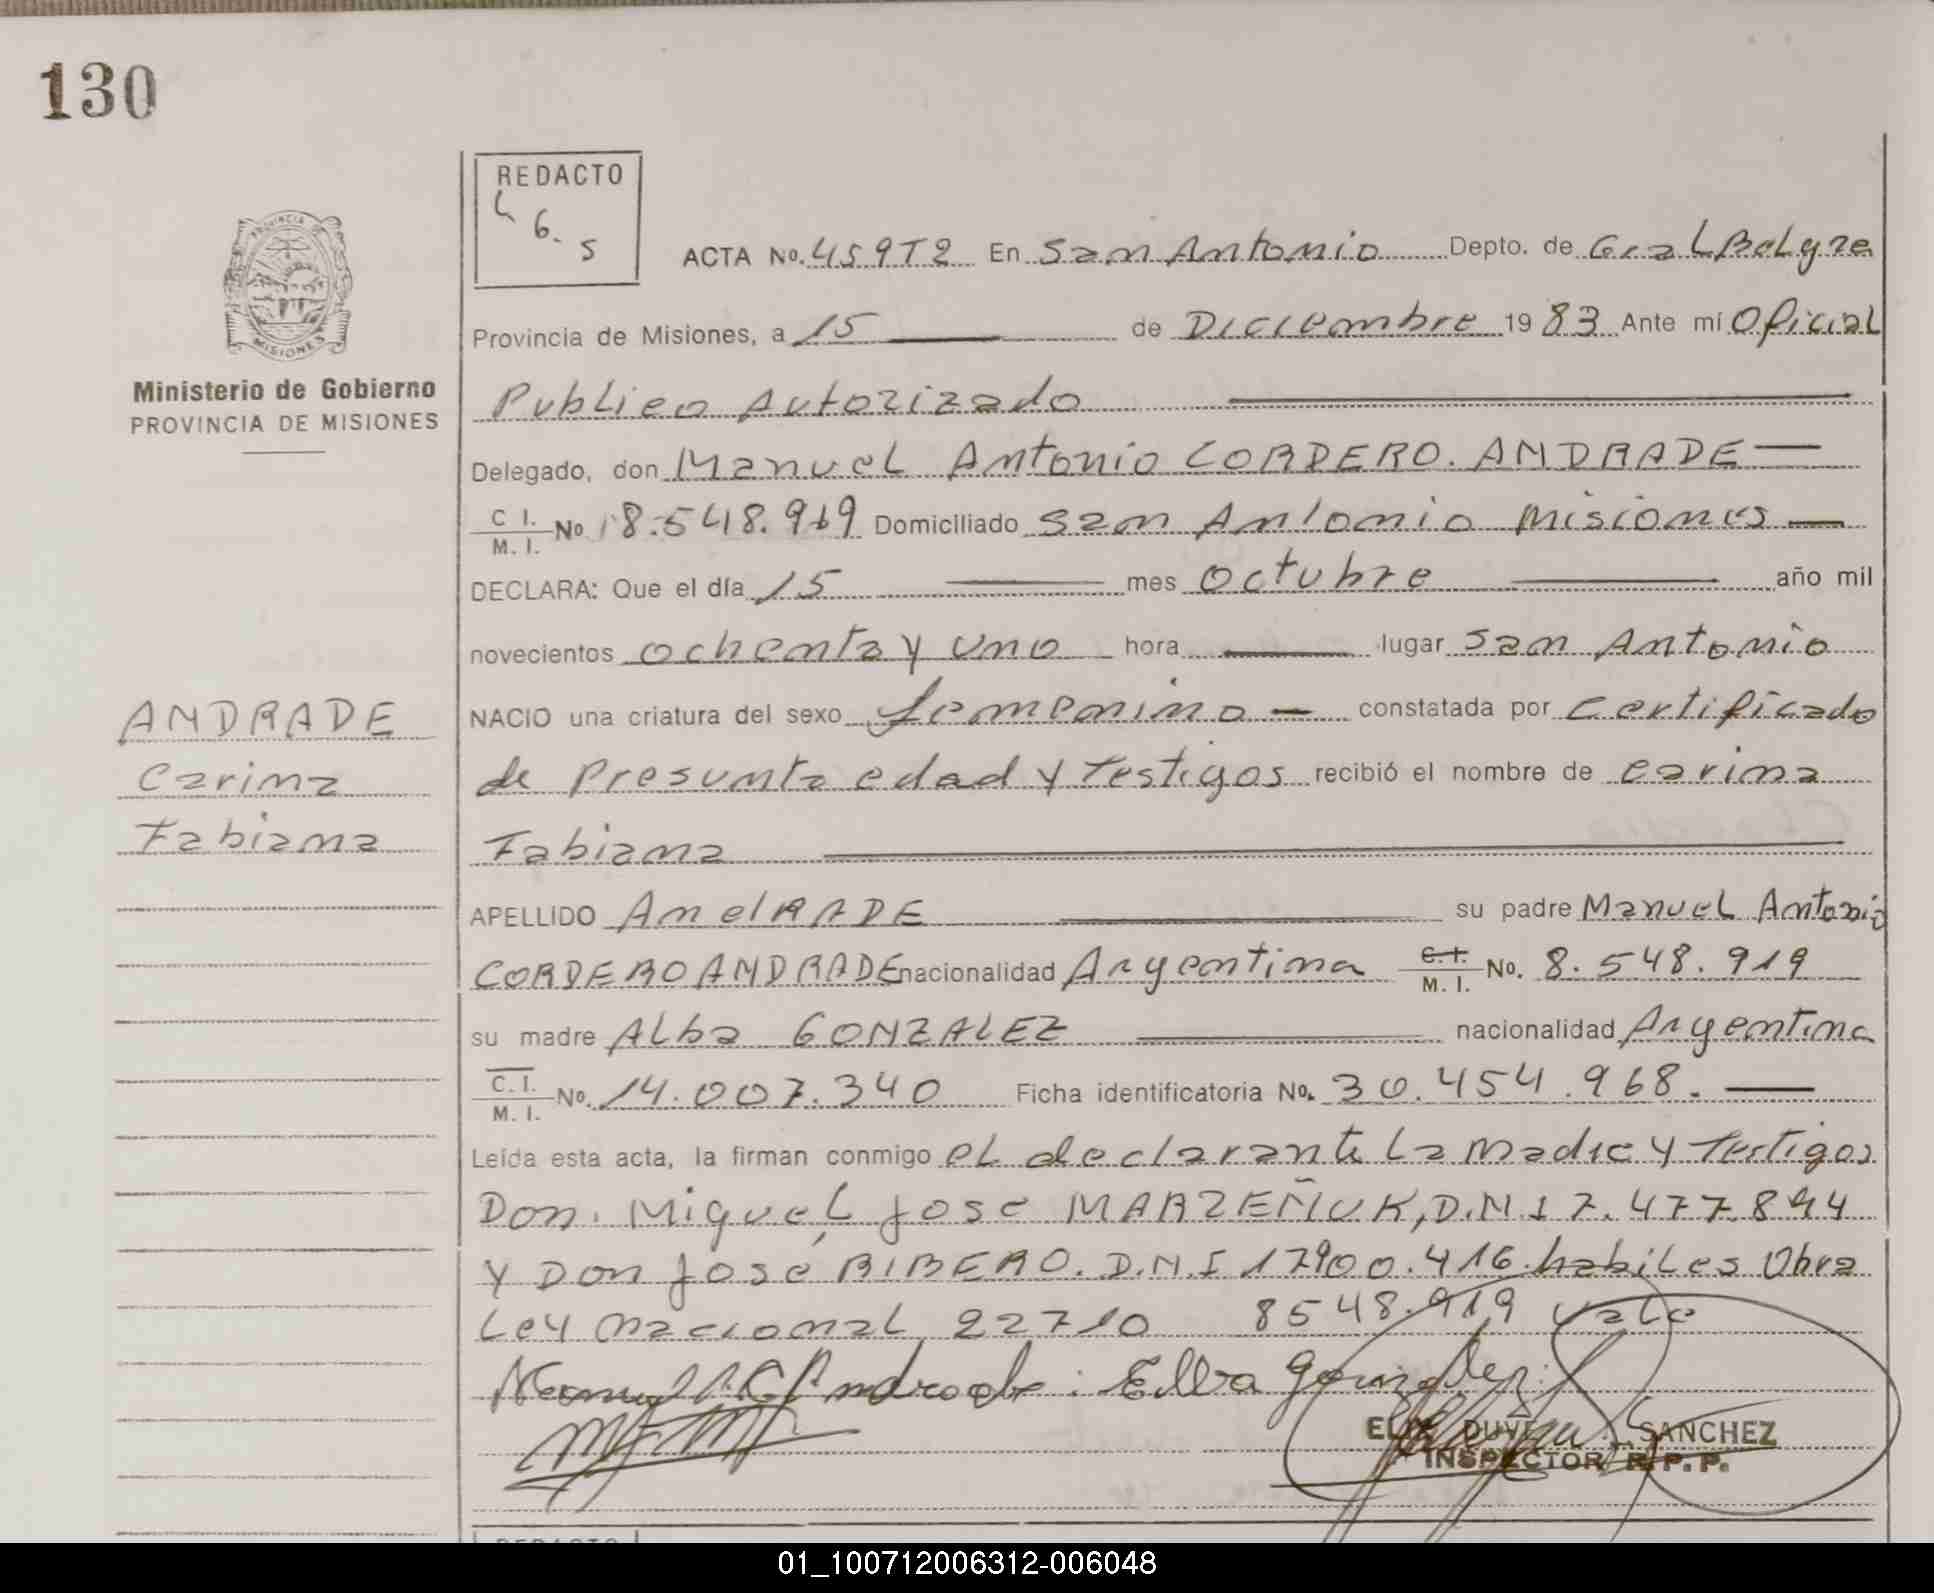 130
REDACTO
6.
5
PROVINCIA
MISIONES
Ministerio de Gobierno
PROVINCIA DE MISIONES
ACTA No. 459T2 En San Antonio Depto. de Gral Belgra
Provincia de Misiones, a 15 de Diciembre 1983 Ante mí Oficial
Publico Autorizado
Delegado, don Manuel Antonio CORDERO. ANDRADE
C I. M. I. No 8.548.919 Domiciliado San Antonio Misiones
DECLARA: Que el día 15 mes octubre año mil
novecientos ochenta y uno hora lugar San Antonio
NACIO una criatura del sexo femenino constatada por certificado
de Presunta edad y testigos recibió el nombre de Carina
Fabiana
ANDRADE
Carina
Fabiana
APELLIDO AndRADE su padre Manuel Antonio
CORDERO ANDRADE nacionalidad Argentina C.I. M. I. No. 8.548.919
su madre Alba GONZALEZ nacionalidad Argentina
C.I. M. I. No. 14.007.340 Ficha identificatoria No. 30.454.968.
Leída esta acta, la firman conmigo el declarante La Madre y Testigos
Don. Miguel Jose MARZEÑUK, D.N.I 7.477.844
y Don José RIBERO. D.N.I 17900.416 habiles Obra
Ley Nacional 22710 8548.919 vale
Andrade Elba Gonzalez
SANCHEZ
INSPECTOR R.P.P.
REDACTO
01_100712006312-006048